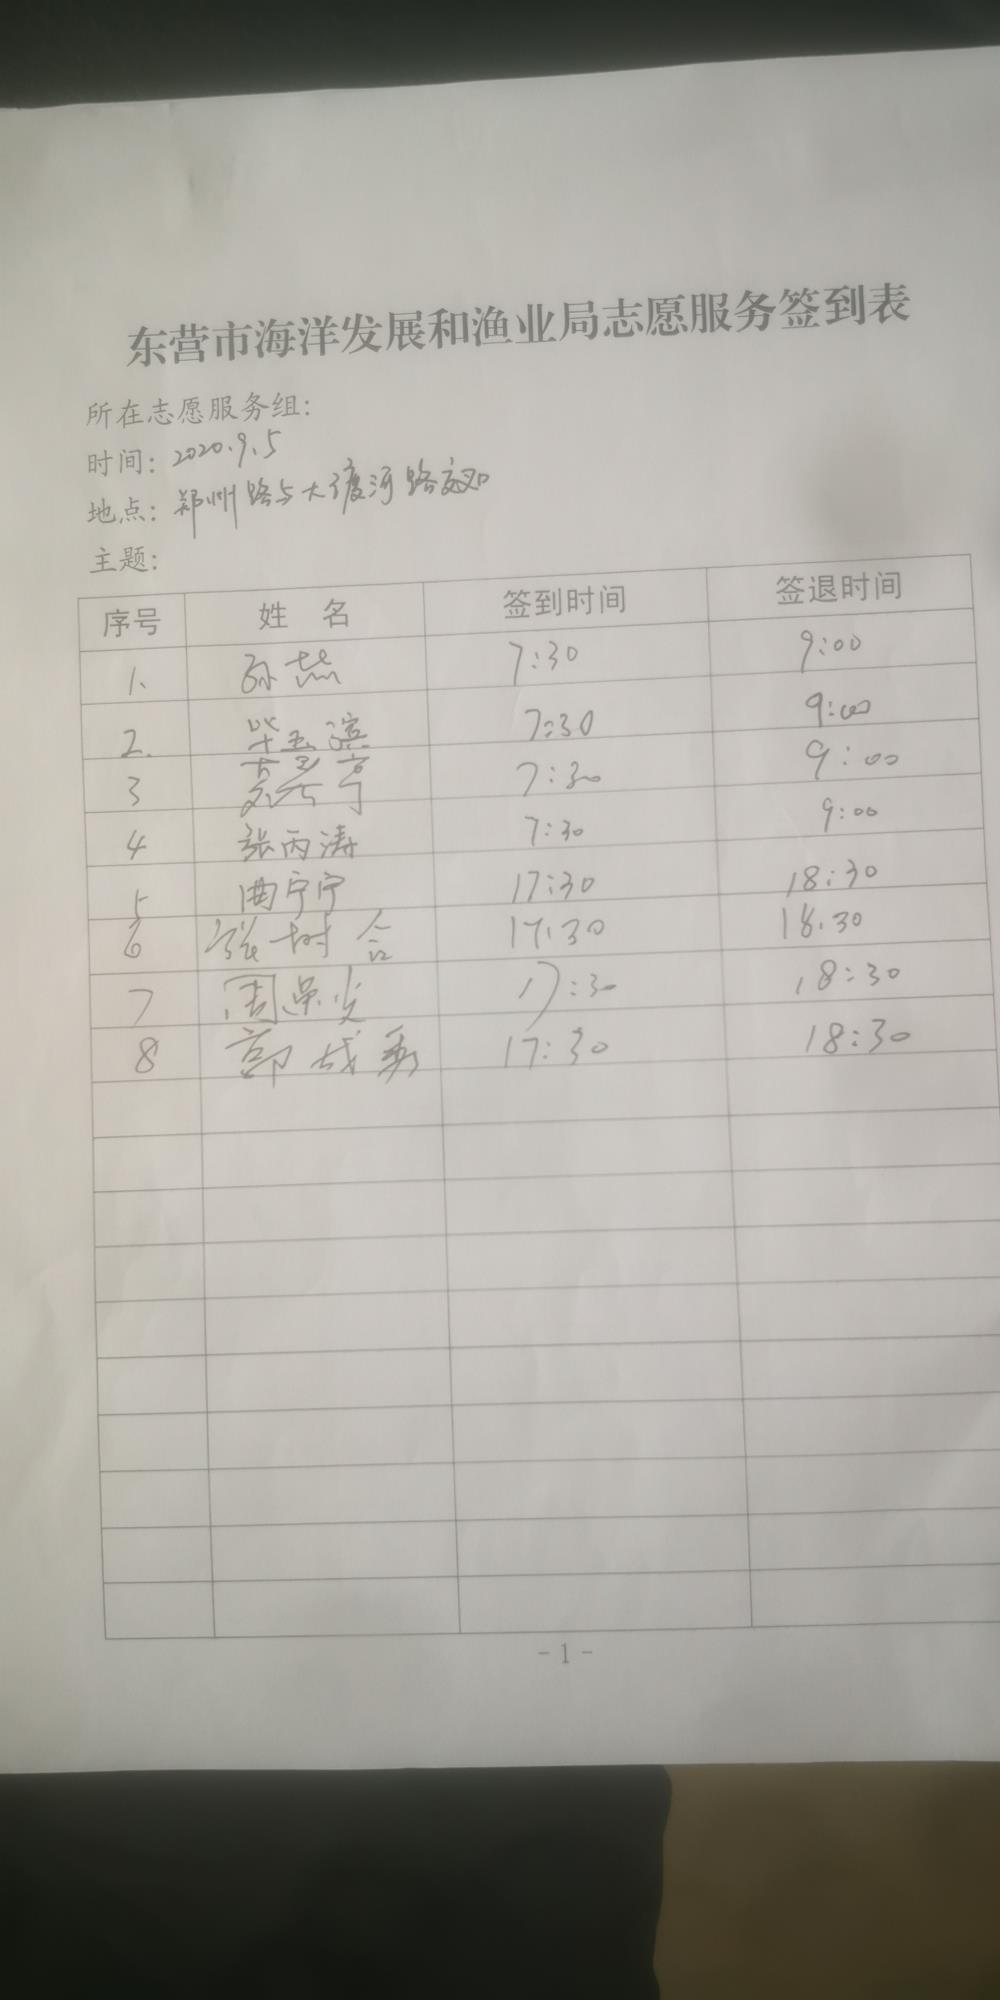 东营市海洋发展和渔业局志愿服务签到表
所在志愿服务组:
时间: 2020.9.5
地点: 郑州路与大渡河路交口
主题:
序号 姓 名 签到时间 签退时间
1、 孙 7:30 9:00
2. 毕玉滨 7:30 9:00
3 7:30 9:00
4 张丙涛 7:30 9:00
5 曲宁宁 17:30 18:30
6 张树合 17:30 18:30
7 周 17:30 18:30
8 17:30 18:30
- 1 -